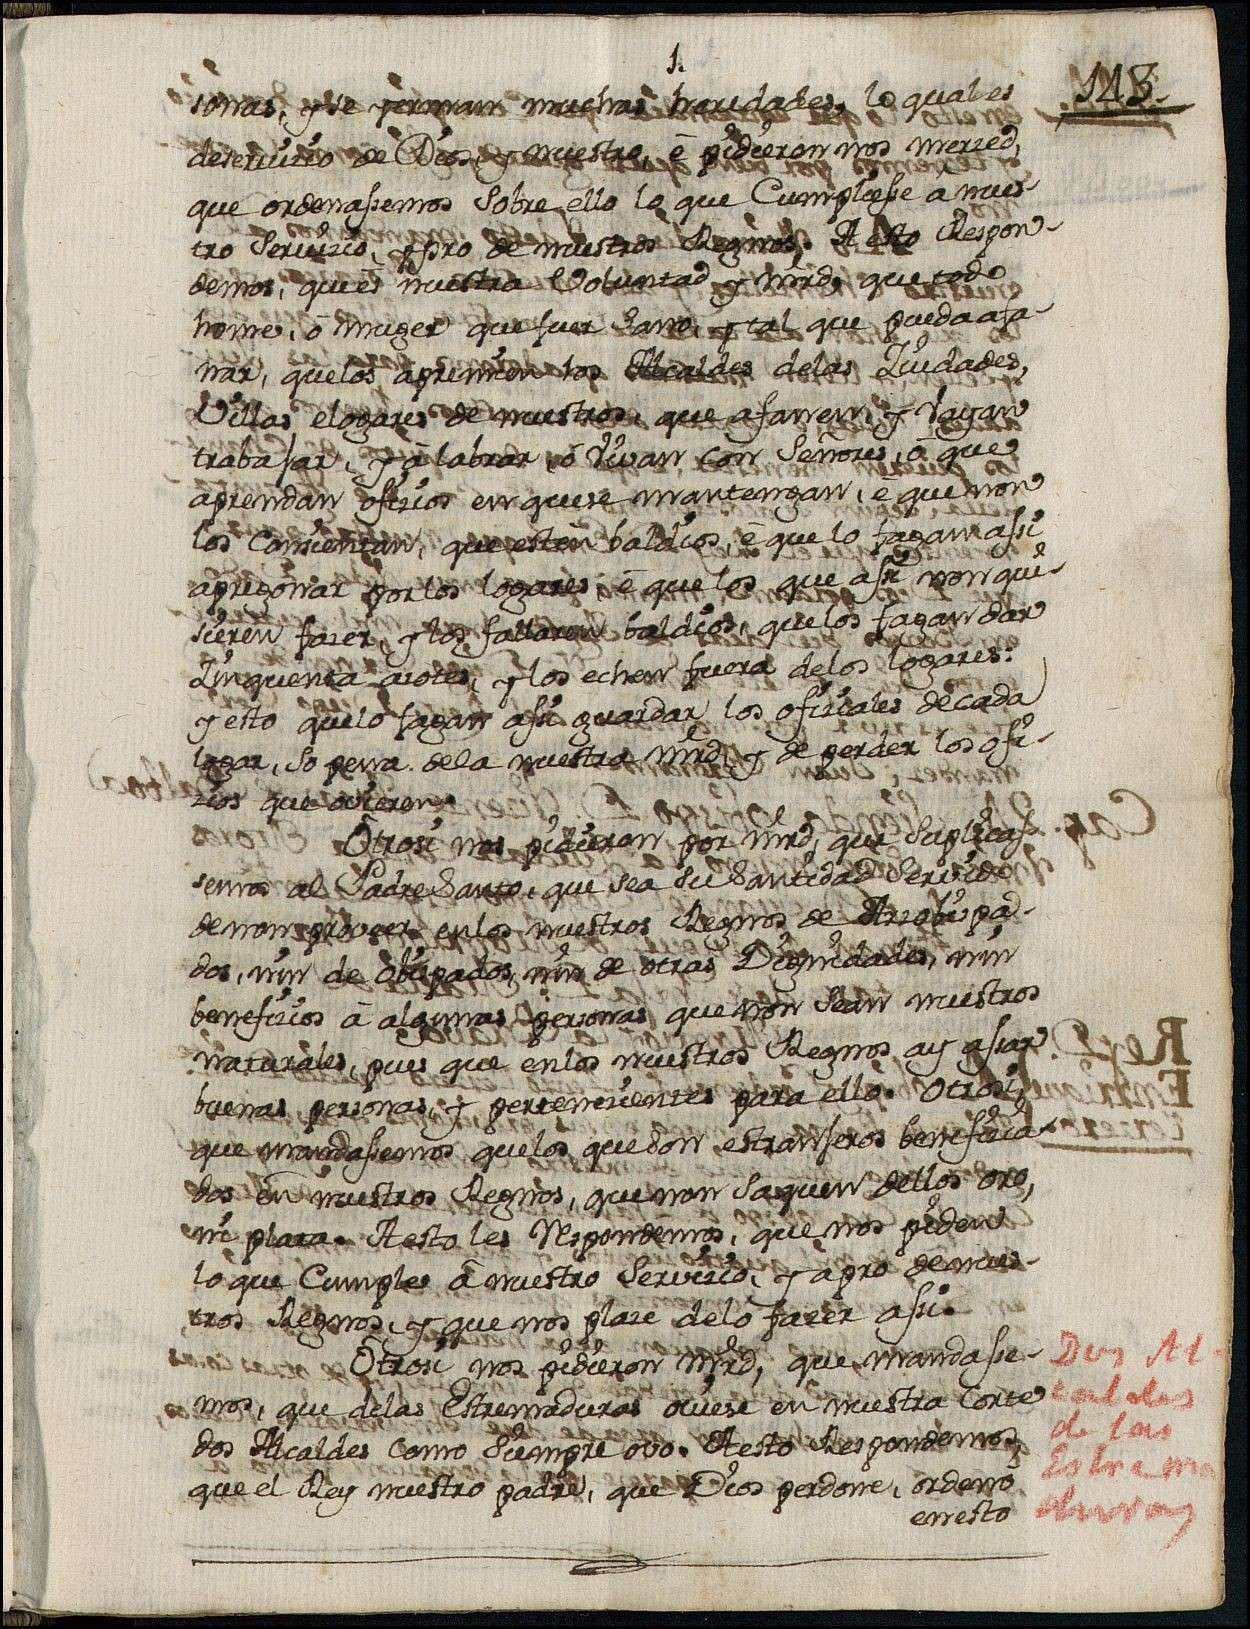 1.
118.
sonas, y se yerman muchas heredades, lo qual es
deservizio de Dios, y nuestro, è pidieron nos merzed,
que ordenassemos Sobre ello lo que Cumpliesse a nues-
tro Servizio, y pro de nuestros Regnos. A esto Respon-
demos, que es nuestra Voluntad y mrd, que todo
home, ò muger que fuer Sano, y tal que pueda afa-
nar, quelos apremien los Alcaldes delas Ziudades,
Villas e logares de nuestros, que afanen, y Vayan
trabajar, y à labrar, ò Vivan con Señores, ò que
aprendan ofizios en que se mantengan, è que non
los Consientan, que esten baldios, è que lo fagan assi
apregonar por los logares è que los que assi non qui-
sieren fazer, y los fallaren baldios, quelos fagan dar
Zinquenta azotes, y los echen fuera delos logares:
y esto quelo fagan assi guardar los ofiziales de cada
logar, so pena dela nuestra mrd, y de perder los ofi-
zios que ovieren.
Otrosi nos pidieron por mrd, que Suplicas-
semos al Padre Santo, que sea Su Santidad Servido
de non proveer en los nuestros Regnos de Arzobispad-
dos, nin de Obispados, nin de otras Dignidades, nin
benefizios à algunas personas que non Sean nuestros
naturales, pues que en los nuestros Regnos ay assaz
buenas personas, y pertenezientes para ello. Otrosi,
que mandassemos quelos que don estranjeros benefizia-
dos en nuestros Regnos, que non Saquen dellos oro,
ni plata. A esto les Respondemos, que nos piden
lo que Cumple à nuestro Servizio, y a pro de nues-
tros Regnos, y que nos plaze delo fazer assi.
Otrosi nos pidieron mrd, que mandasse-
mos, que delas Estremaduras oviese en nuestra Corte
dos Alcaldes como Siempre ovo. A esto Respondemos,
que el Rey nuestro padre, que Dios perdone, ordenò
en esto
Dos Al-
caldes
de las
Estrema
duras